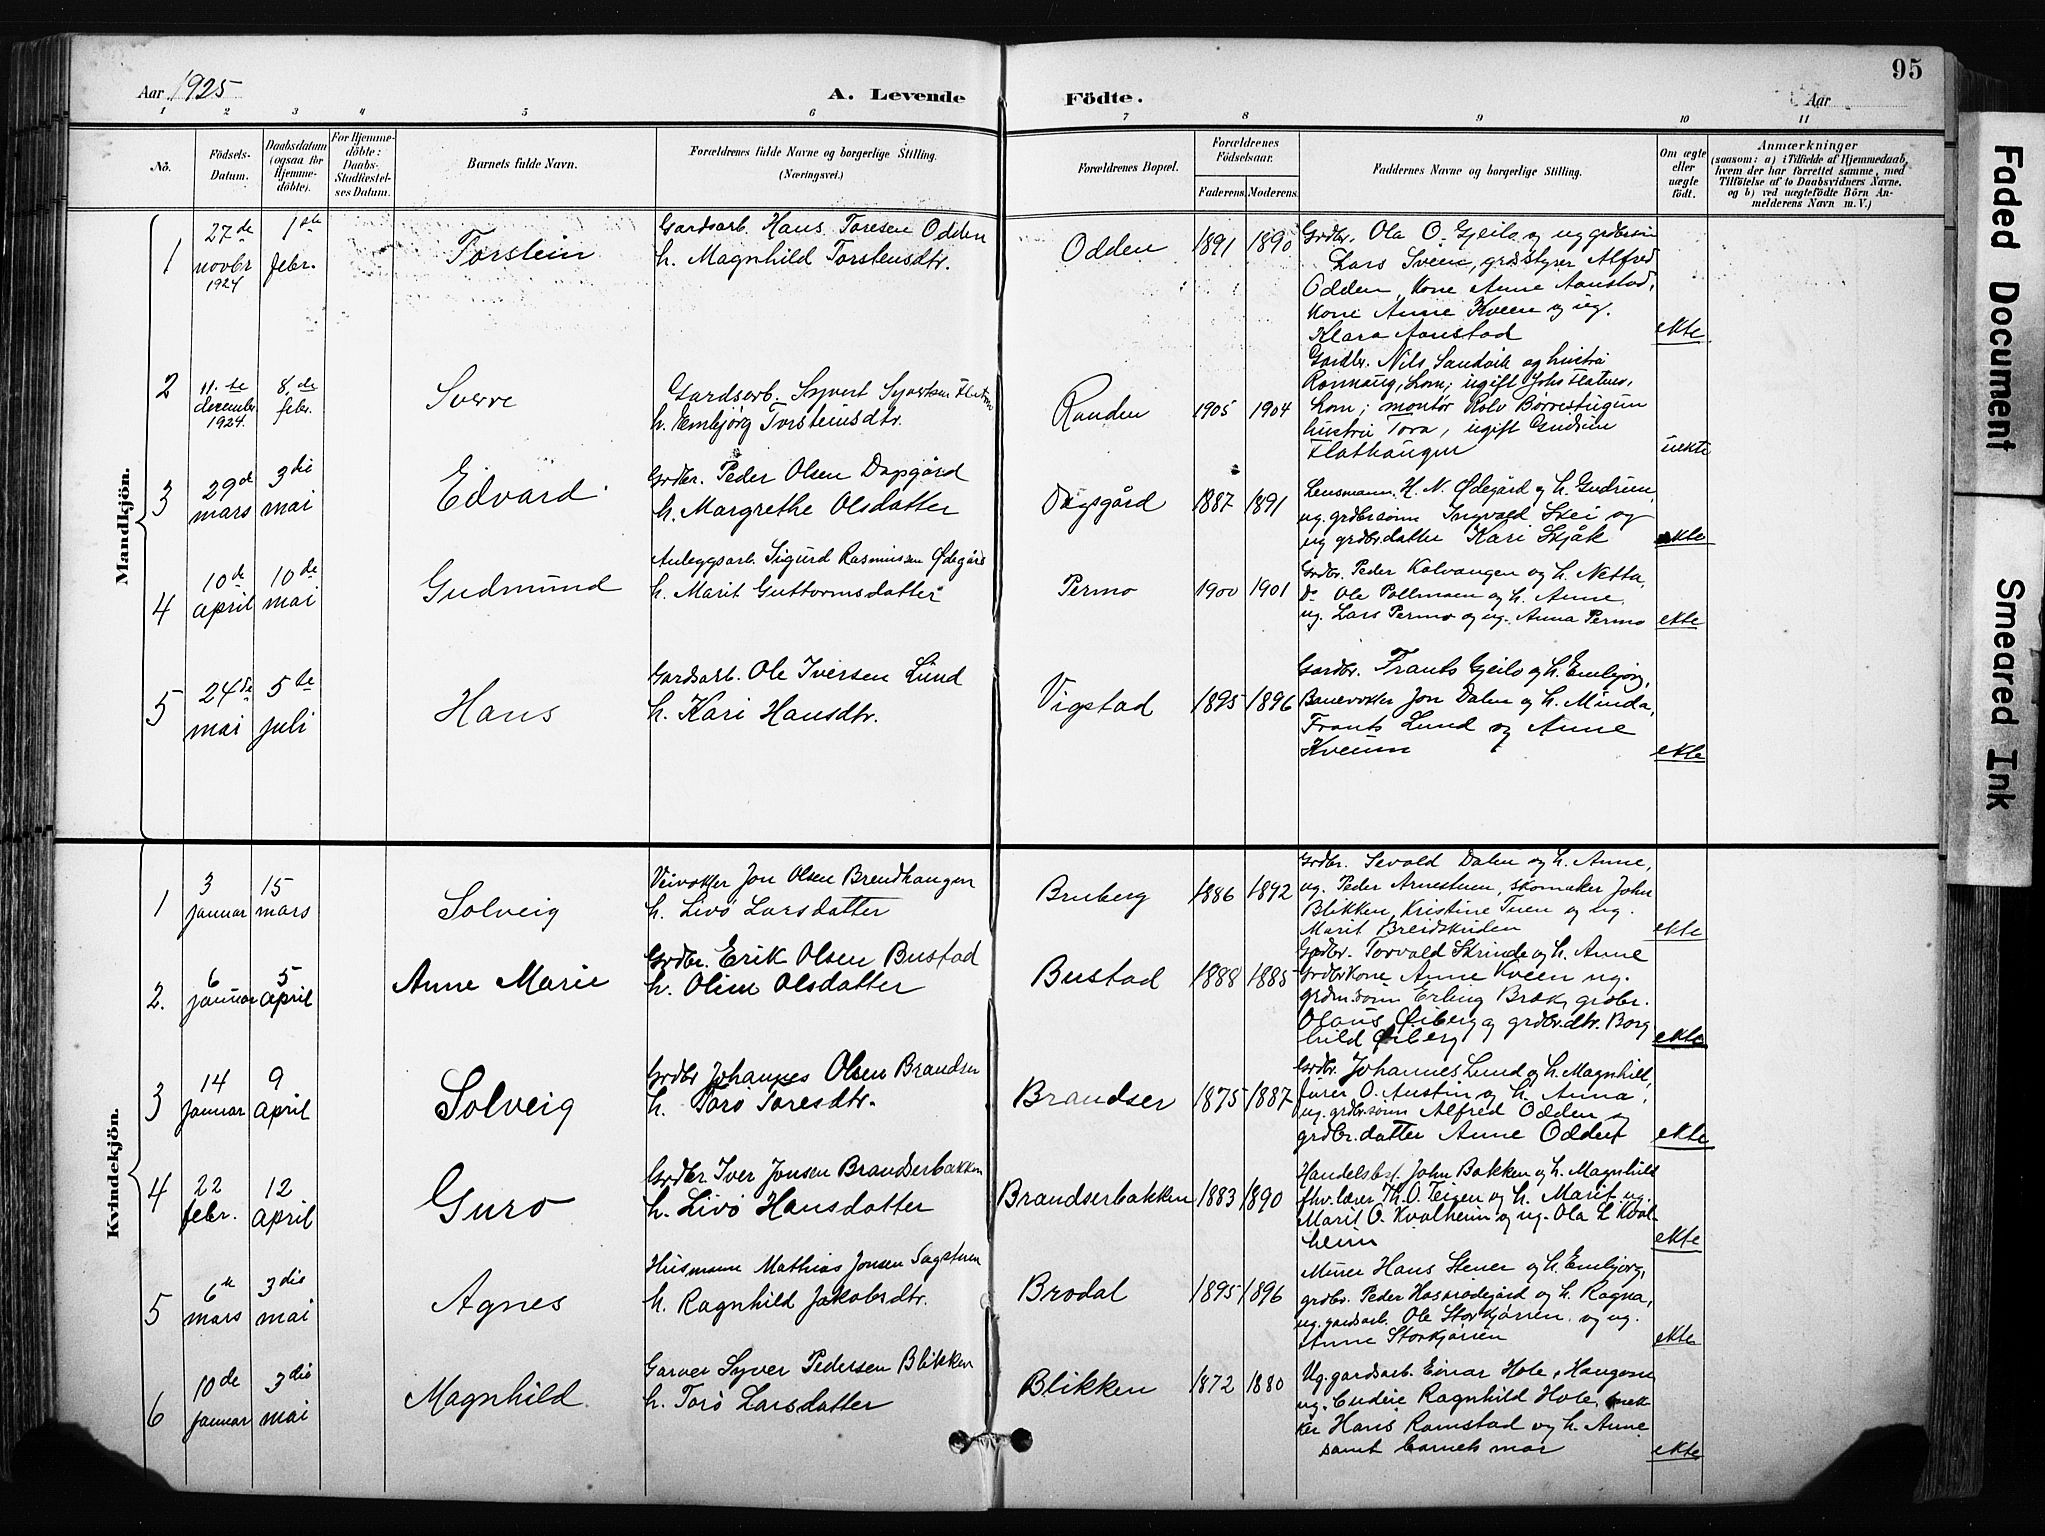 95
Aar 1925
A. Levende Födte.
Aar
1 2 3 4 5 6 7 8 9 10 11
No.
Födsels-Datum.
Daabsdatum (ogsaa for Hjemme-döbte).
For Hjemme-döbte: Daabs-Stadfæstel-ses Datum.
Barnets fulde Navn.
Forældrenes fulde Navne og borgerlige Stilling.
(Næringsvei.)
Forældrenes Bopæl.
Forældrenes Födselsaar.
Faderens. Moderens.
Faddernes Navne og borgerlige Stilling.
Om ægte eller uægte födt.
Anmærkninger
(saasom: a) i Tilfælde af Hjemmedaab,
hvem der har forrettet samme, med
Tilföielse af to Daabsvidners Navne.
og b) ved uægtefödte Börn An-
melderens Navn m. V.)
Mandkjön.
1
27de novbr 1924
1ste febr.
Torstein
Gardsarb. Hans Toresen Odden
h. Magnhild Torstensdtr.
Odden
1891 1890
Grdbr. Ola O. Gjeilo og ug grdbrsøn
Lars Sveen, grdbstyrer Alfred
Odden, Kone Anne Aanstad,
Kone Anne Kveen og ug.
Klara Aanstad
ekte
2
11.te december 1924.
8.de febr.
Sverre
Gardsarb. Syvert Syvertsen
h. Embjørg Torsteinsdtr.
Randen
1905 1904
Gardbr. Nils Sandvik og hustru
Rønnaug, Lom; ugift Johs Flaten,
Lom; montør Rolv Børrestuen
hustru Tora, ugift Gudrun
Flathaugen
uekte
3
29de mars
3die mai
Edvard
Grdbr. Peder Olsen Dagsgård
h. Margrethe Olsdatter
Dagsgård
1887 1891
Lensmann H. N. Ødegård og h. Gudrun,
ug. grdbrsønn Ingvald Skei og
ug grdbr.datter Kari Skjåk
ekte
4
10de april
10de mai
Gudmund
Anleggsarb. Sigurd Rasmussen Ødegård
h. Marit Guttormsdatter
Permo
1900 1901
Grdbr. Peder Kolvangen og h. Netta,
do Ole Pollmoen og h. Anne,
ug. Lars Permo og ug. Anna Permo
ekte
5
24de mai
5te juli
Hans
Gardsarb. Ole Iversen Lund
h. Kari Hansdtr.
Vigstad
1895 1896
Gardbr. Frants Gjeilo og h. Embjørg,
Banevokter Jon Dalen og h. Minda,
Frants Lund og Anne
Kveum
ekte
Kvindekjön.
1
3 januar
15 mars
Solveig
Veivokter Jon Olsen Brendhaugen
h. Livø Larsdatter
Bruberg
1886 1892
Grdbr. Sevald Dalen og h. Anne,
ug. Peder Arnestuen, skomaker John
Blikken, Kristine Tuen og ug.
Marit Breidskriden
ekte
2.
6 januar
5 april
Anne Marie
Grdbr. Erik Olsen Bustad
h. Oline Olsdatter
Bustad
1888 1885
Grdbr. Torvald Skrinde og h. Anne
Grdbrkone Anne Kveen ug.
grdm.sønn Erling Bræk, grdbr.
Olaus Øiberg og grdbr.dtr. Borg
hild Øiberg
ekte
3
14 januar
9 april
Solveig
Grdbr Johannes Olsen Brandser
h. Torø Toresdtr.
Brandser
1875 1887
Grdbr. Johannes Lund og h. Magnhild,
furer O. Austin og h. Anna,
ug. grdbrsønn Alfred Odden og
grdbr.datter Anne Odden
ekte
4
22 febr.
12 april
Guro
Grdbr Iver Jonsen Brandserbakken
h. Livø Hansdatter
Brandserbakken
1883 1890
Handelsbst. John Bakken og h. Magnhild
fhv. lærer Th. O. Teigen og h. Marit, ug.
Marit O. Kvalheim og ug. Ola L Kval-
heim
ekte
5
6te mars
3die mai
Agnes
Husmann Mathias Jonsen Sagstuen
h. Ragnhild Jakobsdtr.
Brodal
1895 1896
Murer Hans Stener og h. Embjørg,
grdbr. Peder og h. Ragna,
ug. gardsarb. Ole Storkjørren og ug.
Anne Storkjørren
ekte
6
10de januar
3die mai
Magnhild
Garver Syver Pedersen Blikken
h. Torø Larsdatter
Blikken
1872 1880
Ug. gardsarb. Einar Hole, Haugen
ug. budeie Ragnhild Hole,
ker Hans Ramstad og h. Anne
samt barnets mor
ekte
Faded Document
Smeared Ink